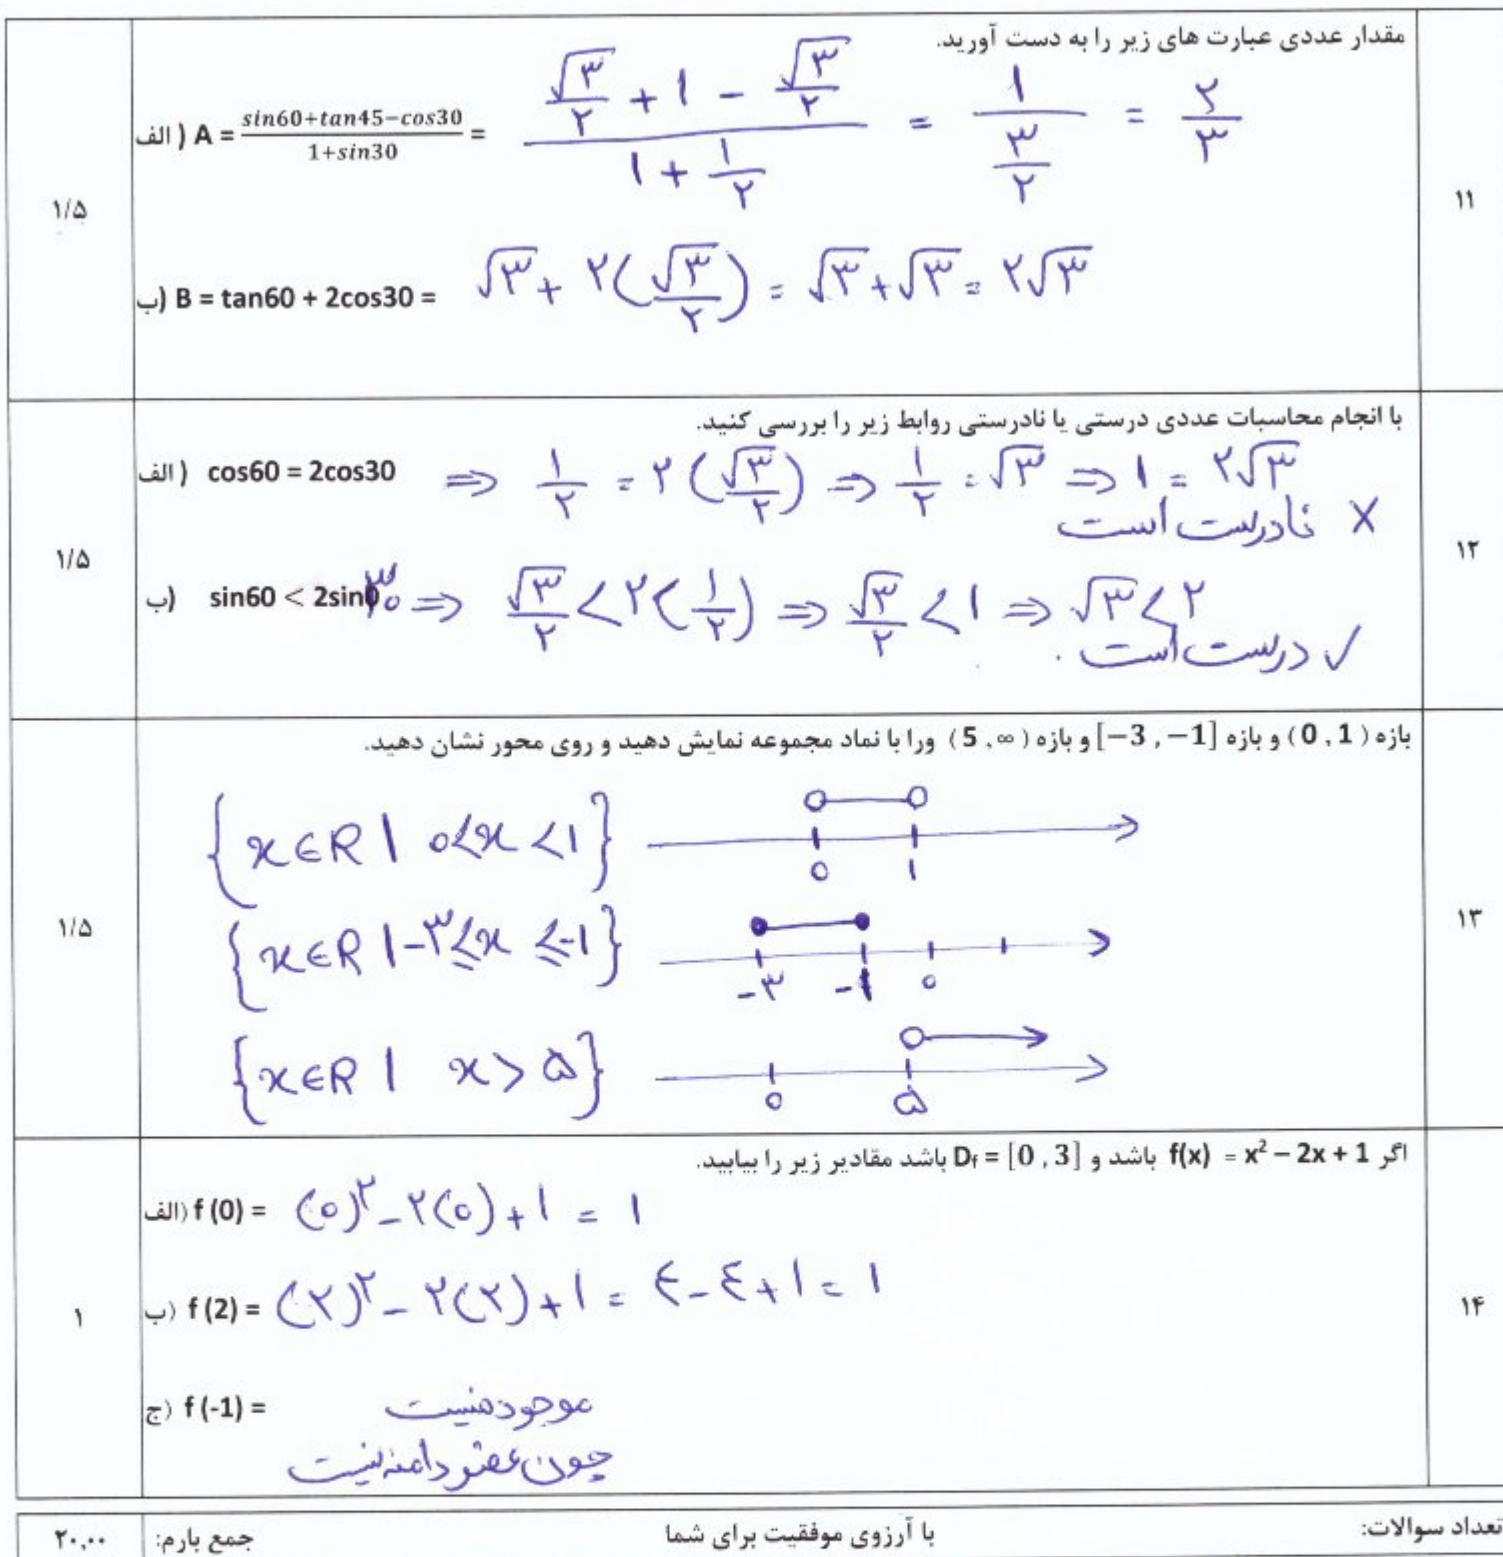 ۱۱
مقدار عددی عبارت های زیر را به دست آورید.
الف ) A = (sin60+tan45−cos30)/(1+sin30) = (√۳/۲ + ۱ − √۳/۲)/(۱ + ۱/۲) = ۱/(۳/۲) = ۲/۳
ب) B = tan60 + 2cos30 = √۳ + ۲(√۳/۲) = √۳ + √۳ = ۲√۳
۱/۵
۱۲
با انجام محاسبات عددی درستی یا نادرستی روابط زیر را بررسی کنید.
الف ) cos60 = 2cos30 ⇒ ۱/۲ = ۲(√۳/۲) ⇒ ۱/۲ = √۳ ⇒ ۱ = ۲√۳
× نادرست است
ب) sin60 < 2sin۳۰ ⇒ √۳/۲ < ۲(۱/۲) ⇒ √۳/۲ < ۱ ⇒ √۳ < ۲
✓ درست است .
۱/۵
۱۳
بازه ( 0 , 1 ) و بازه [−3 , −1] و بازه ( 5 , ∞ ) ورا با نماد مجموعه نمایش دهید و روی محور نشان دهید.
{x∈R | ۰<x<۱} ۰ ۱
{x∈R | −۳≤x≤−۱} −۳ −۱ ۰
{x∈R | x>۵} ۰ ۵
۱/۵
۱۴
اگر f(x) = x² − 2x + 1 باشد و Df = [0 , 3] باشد مقادیر زیر را بیابید.
الف) f (0) = (۰)² − ۲(۰) + ۱ = ۱
ب) f (2) = (۲)² − ۲(۲) + ۱ = ۴ − ۴ + ۱ = ۱
ج) f (-1) = موجود نیست
چون عضو دامنه نیست
۱
تعداد سوالات:
با آرزوی موفقیت برای شما
جمع بارم:
۲۰,۰۰